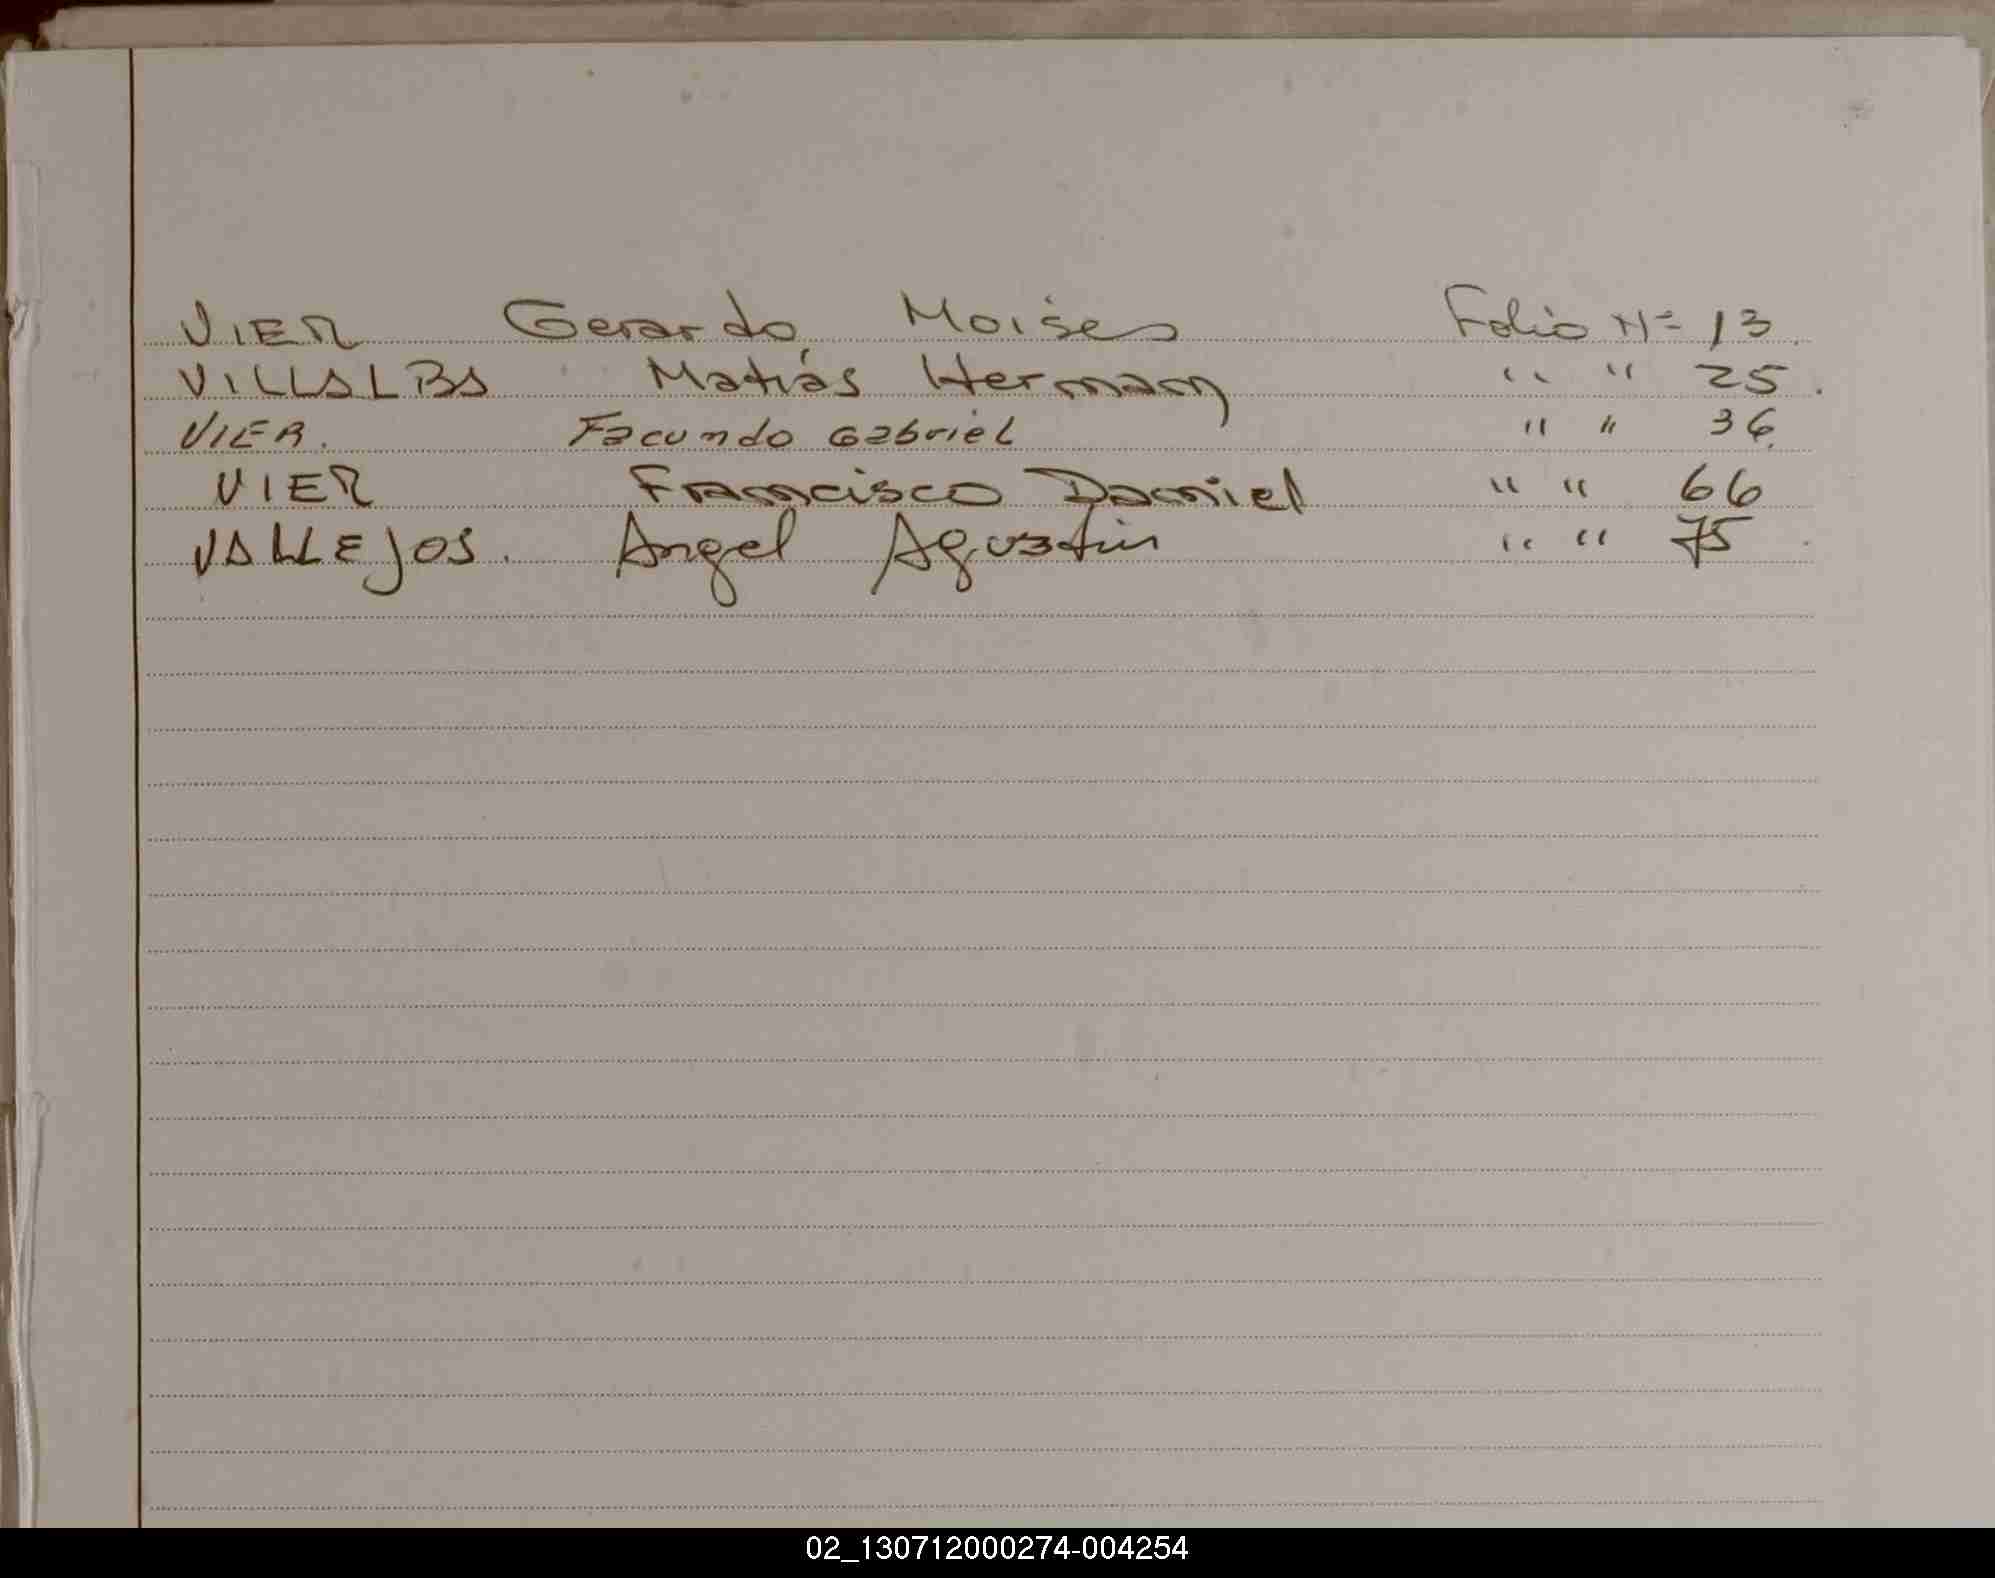 VIER Gerardo Moises Folio Nº 13
VILLALBA Matías Hernan " " 25.
VIER. Facundo Gabriel " " 36.
VIER Francisco Daniel " " 66
VALLEJOS. Angel Agustin " " 75.
02_130712000274-004254